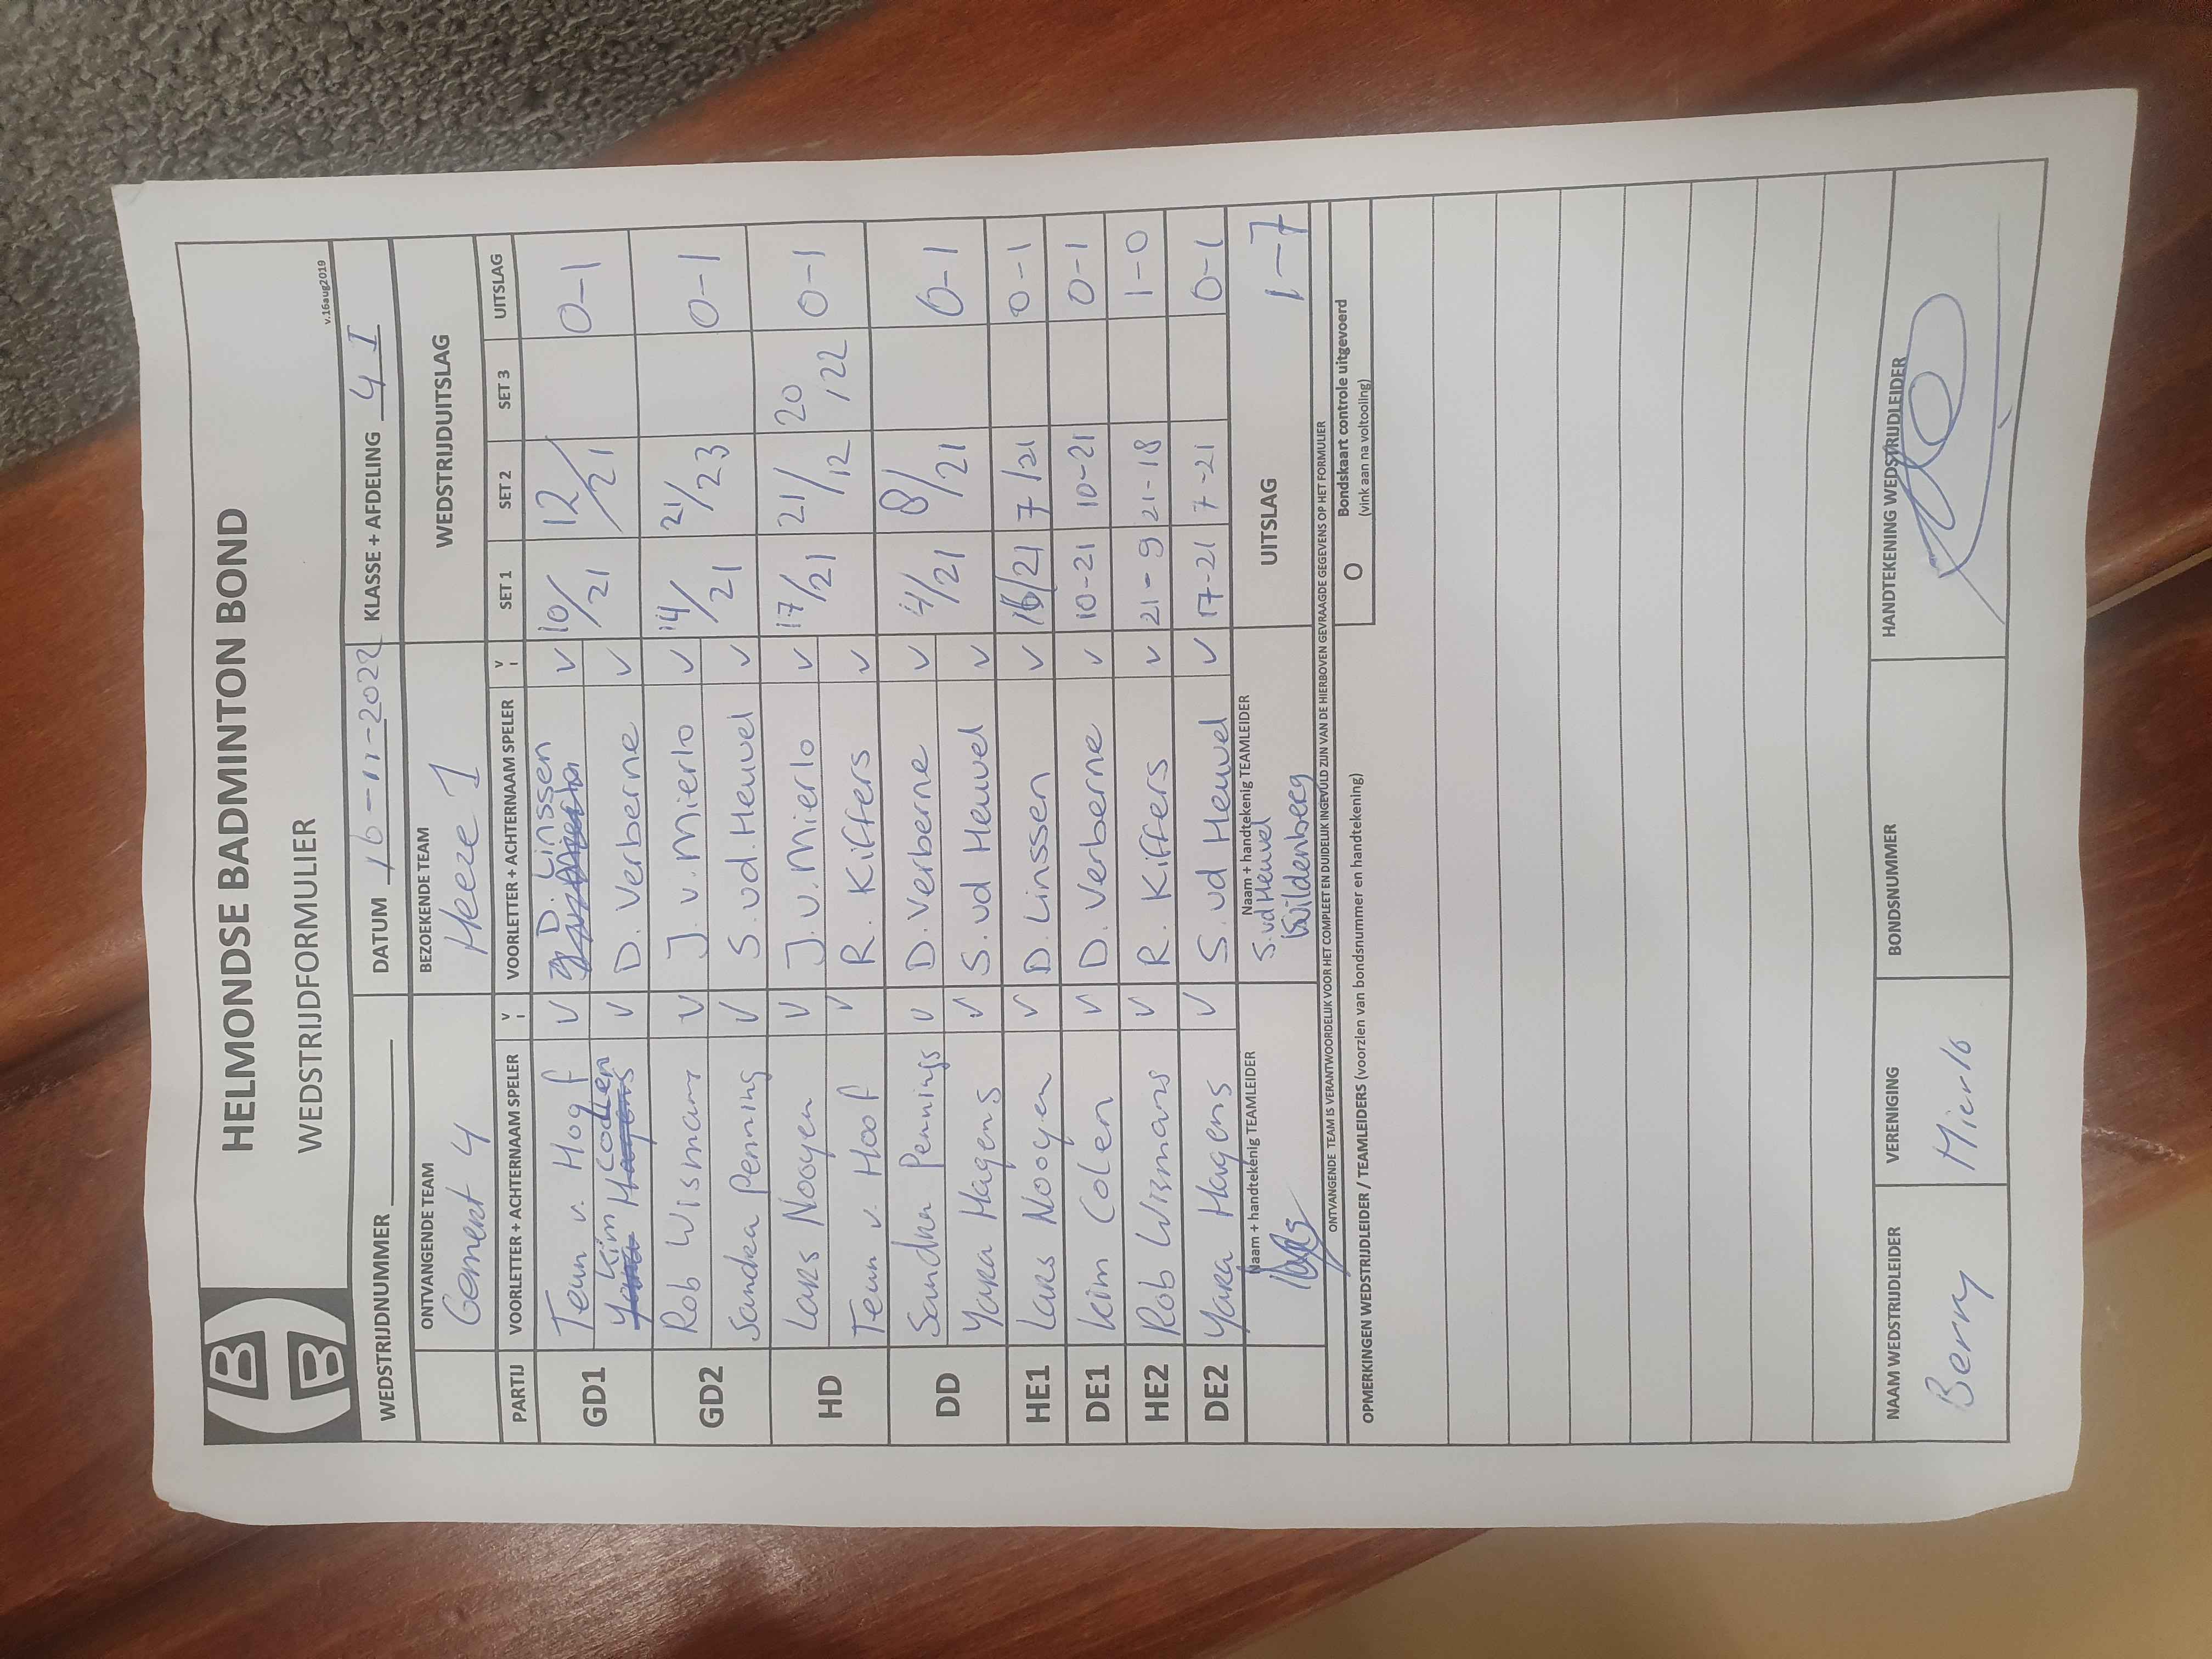 HELMONDSE BADMINTON BOND
WEDSTRIJDFORMULIER
v.16aug2019
WEDSTRIJDNUMMER DATUM 16-11-2022 KLASSE + AFDELING 4 I
ONTVANGENDE TEAM BEZOEKENDE TEAM WEDSTRIJDUITSLAG
Gemert 4 Heeze 1
PARTIJ VOORLETTER + ACHTERNAAM SPELER V VOORLETTER + ACHTERNAAM SPELER V SET 1 SET 2 SET 3 UITSLAG
GD1 Teun v. Hoof V D. Linssen V 10/21 12/21 0-1
Kim Coolen V D. Verberne V
GD2 Rob Wismans V J. v. Mierlo V 14/21 21/23 0-1
Sandra Penning V S. vd. Heuvel V
HD Lars Nooyen V J. v. Mierlo V 17/21 21/12 20/22 0-1
Teun v. Hoof V R. Kiffers V
DD Sandra Pennings V D. Verberne V 4/21 8/21 0-1
Yara Hagens V S. vd Heuvel V
HE1 Lars Nooyen V D. Linssen V 16/21 7/21 0-1
DE1 Kim Colen V D. Verberne V 10-21 10-21 0-1
HE2 Rob Wismans V R. Kiffers V 21-9 21-18 1-0
DE2 Yara Hagens V S. vd Heuvel V 17-21 7-21 0-1
Naam + handtekenig TEAMLEIDER Naam + handtekenig TEAMLEIDER UITSLAG 1-7
S. vd Heuvel
Wildenberg
ONTVANGENDE TEAM IS VERANTWOORDELIJK VOOR HET COMPLEET EN DUIDELIJK INGEVULD ZIJN VAN DE HIERBOVEN GEVRAAGDE GEGEVENS OP HET FORMULIER
OPMERKINGEN WEDSTRIJDLEIDER / TEAMLEIDERS (voorzien van bondsnummer en handtekening)
O Bondskaart controle uitgevoerd
(vink aan na voltooiing)
NAAM WEDSTRIJDLEIDER VERENIGING BONDSNUMMER HANDTEKENING WEDSTRIJDLEIDER
Berry Mierlo